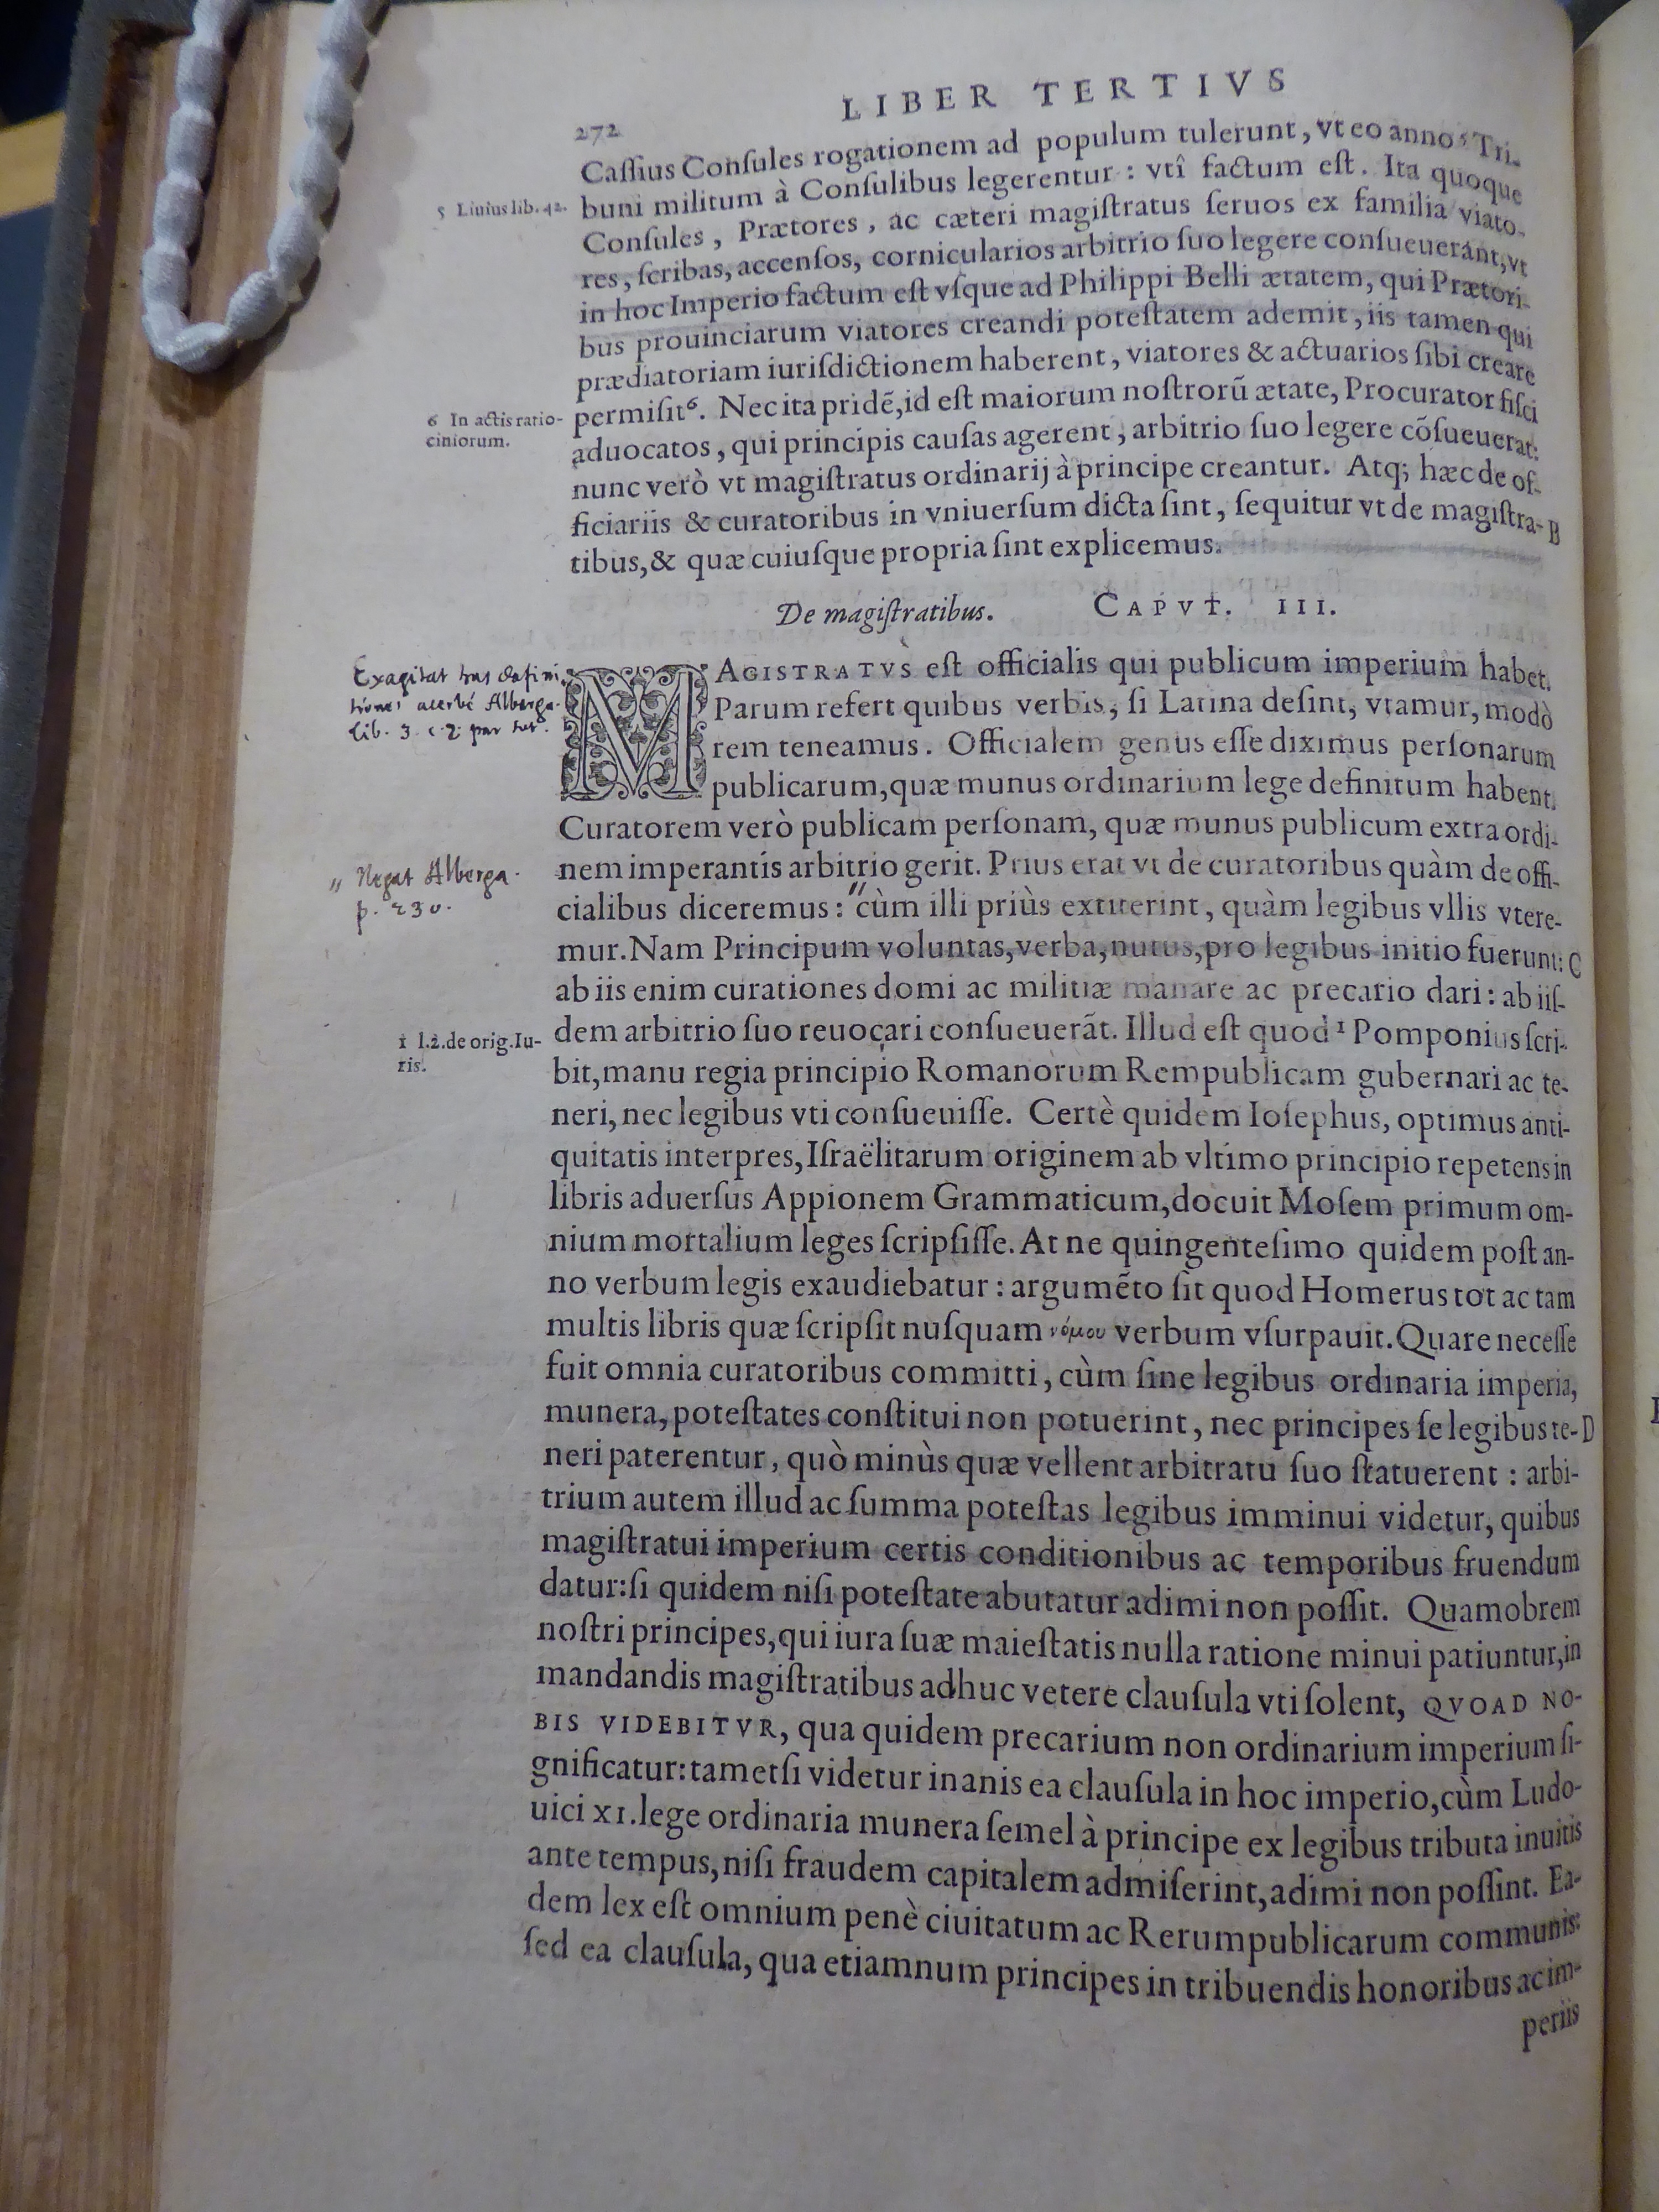 LIBER TERTIVS
272
Caſſius Conſules rogationem ad populum tulerunt, vt eo anno ⁵ Tri-
buni militum à Conſulibus legerentur : vtî factum eſt. Ita quoque
5 Liuius lib. 42.
Conſules, Prætores, ac cæteri magiſtratus ſeruos ex familia viato-
res, ſcribas, accenſos, cornicularios arbitrio ſuo legere conſueuerant, vt
in hoc Imperio factum eſt vſque ad Philippi Belli ætatem, qui Prætori-
bus prouinciarum viatores creandi poteſtatem ademit, iis tamen qui
prædiatoriam iuriſdictionem haberent, viatores & actuarios ſibi creare
6 In actis ratio-
ciniorum.
permiſit⁶. Nec ita pridẽ, id eſt maiorum noſtrorũ ætate, Procurator fiſci
aduocatos, qui principis cauſas agerent, arbitrio ſuo legere cõſueuerat:
nunc verò vt magiſtratus ordinarij à principe creantur. Atq; hæc de of-
ficiariis & curatoribus in vniuerſum dicta ſint, ſequitur vt de magiſtra- B
tibus, & quæ cuiuſque propria ſint explicemus.
De magiſtratibus. CAPVT. III.
Exagitat has defini-
tiones acerbé Alberga.
lib. 3. c. 2. par tot.
MAGISTRATVS eſt officialis qui publicum imperium habet.
Parum refert quibus verbis, ſi Latina deſint, vtamur, modò
rem teneamus. Officialem genus eſſe diximus perſonarum
publicarum, quæ munus ordinarium lege definitum habent.
Curatorem verò publicam perſonam, quæ munus publicum extra ordi-
nem imperantis arbitrio gerit. Prius erat vt de curatoribus quàm de offi-
" Negat Alberga.
p. 230.
cialibus diceremus : "cùm illi priùs extiterint, quàm legibus vllis vtere-
mur. Nam Principum voluntas, verba, nutus, pro legibus initio fuerunt: C
ab iis enim curationes domi ac militiæ manare ac precario dari : ab iiſ-
1 l.2. de orig. Iu-
ris.
dem arbitrio ſuo reuocari conſueuerãt. Illud eſt quod ¹ Pomponius ſcri-
bit, manu regia principio Romanorum Rempublicam gubernari ac te-
neri, nec legibus vti conſueuiſſe. Certè quidem Ioſephus, optimus anti-
quitatis interpres, Iſraëlitarum originem ab vltimo principio repetens in
libris aduerſus Appionem Grammaticum, docuit Moſem primum om-
nium mortalium leges ſcripſiſſe. At ne quingenteſimo quidem poſt an-
no verbum legis exaudiebatur : argumẽto ſit quod Homerus tot ac tam
multis libris quæ ſcripſit nuſquam νόμου verbum vſurpauit. Quare neceſſe
fuit omnia curatoribus committi, cùm ſine legibus ordinaria imperia,
munera, poteſtates conſtitui non potuerint, nec principes ſe legibus te- D
neri paterentur, quò minùs quæ vellent arbitratu ſuo ſtatuerent : arbi-
trium autem illud ac ſumma poteſtas legibus imminui videtur, quibus
magiſtratui imperium certis conditionibus ac temporibus fruendum
datur: ſi quidem niſi poteſtate abutatur adimi non poſſit. Quamobrem
noſtri principes, qui iura ſuæ maieſtatis nulla ratione minui patiuntur, in
mandandis magiſtratibus adhuc vetere clauſula vti ſolent, QVOAD NO-
BIS VIDEBITVR, qua quidem precarium non ordinarium imperium ſi-
gnificatur: tametſi videtur inanis ea clauſula in hoc imperio, cùm Ludo-
uici XI. lege ordinaria munera ſemel à principe ex legibus tributa inuitis
ante tempus, niſi fraudem capitalem admiſerint, adimi non poſſint. Ea-
dem lex eſt omnium penè ciuitatum ac Rerumpublicarum communis:
ſed ea clauſula, qua etiamnum principes in tribuendis honoribus ac im-
periis